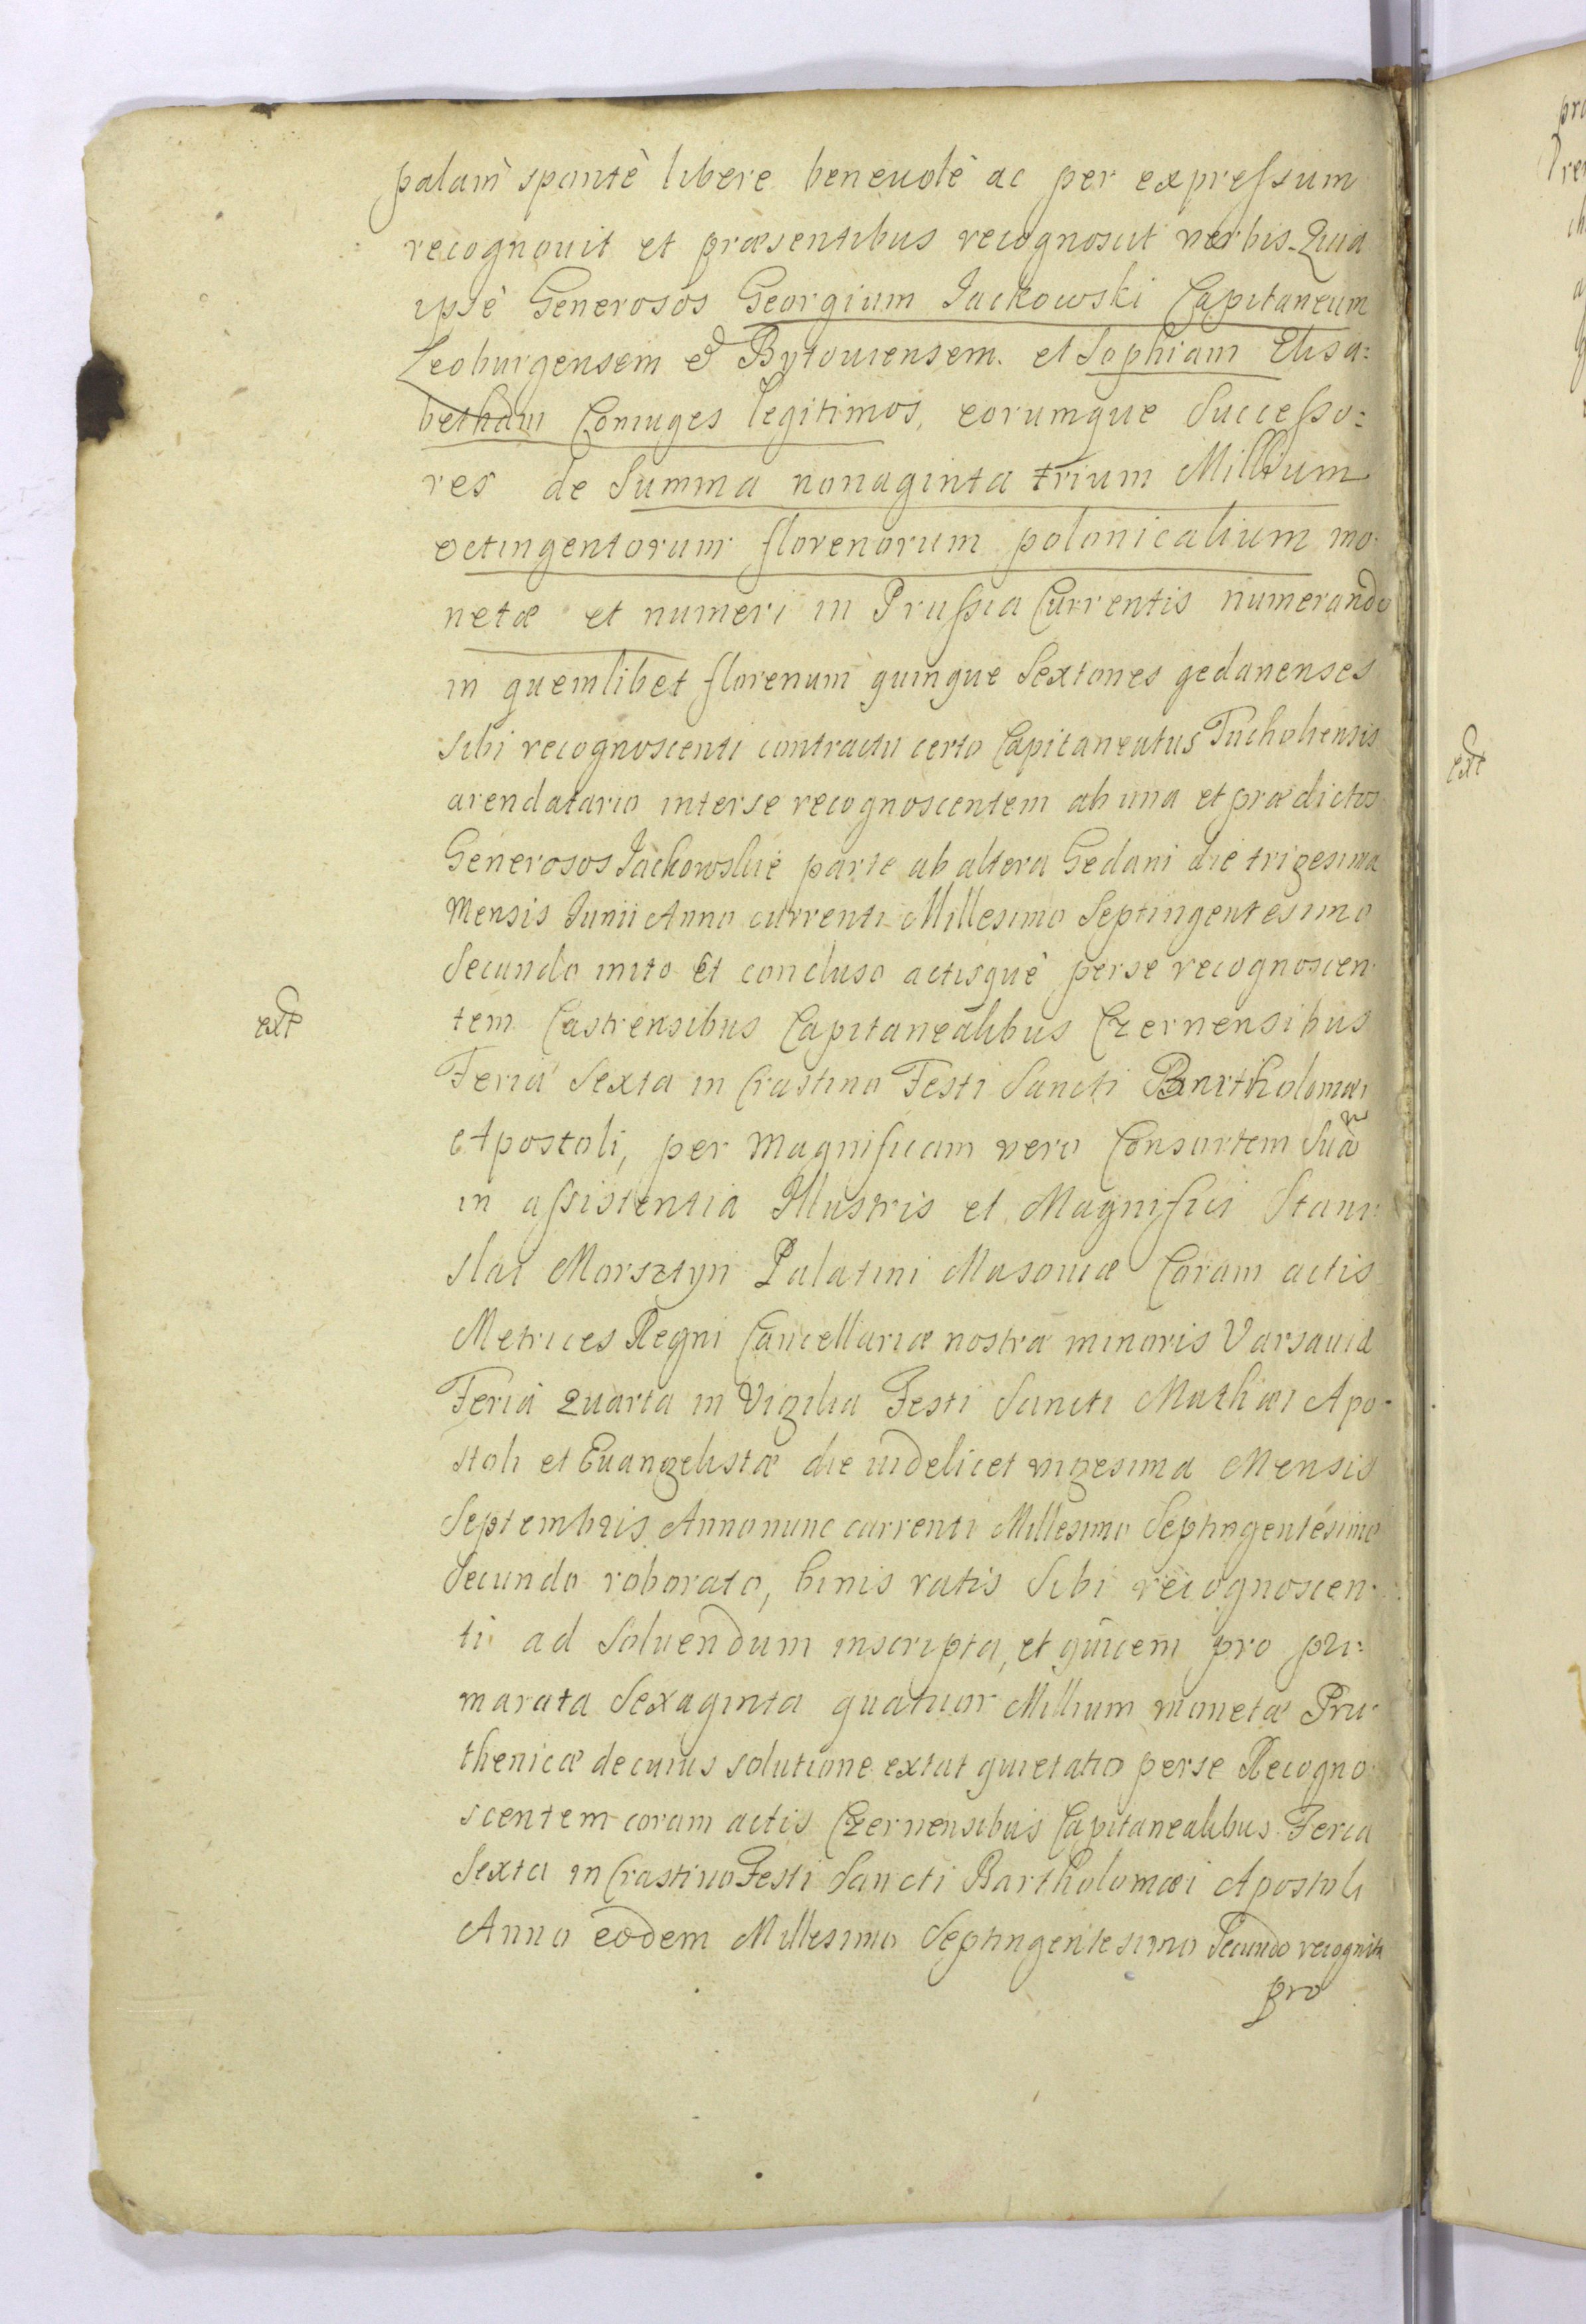 palam spontè libere beneuolè ac per expreſsum
recognouit et præsentibus recognoscit verbis. Quia
ipse Generosos Georgium Jackowski Capitaneum
Leoburgensem & Bytouiensem. et Sophiam Elisa:
betham Coniuges legitimos, eorumque Succeſso:
res de Summa nonaginta trium Millium
octingentorum florenorum polonicalium mo-
netæ et numeri in Pruſsia Currentis numerando
in quemlibet florenum quinque Sextones gedanenses
Sibi recognoscenti contractu certo Capitaneatus Tucholiensis
arendatario interse recognoscentem ab una et prædictos
Generosos Jackowskie parte ab altera Gedani die trigesima
Mensis Junii Anno currenti Millesimo Septingentesimo
Secundo inito et concluso actisquè perse recognoscen-
tem Castrensibus Capitanealibus Czernensibus
ext
Feriâ Sexta in Crastino Festi Sancti Bartholomæi
Apostoli, per Magnificam vero Consortem Suã
in aſsistentia Illustris et Magnifici Stani-
slai Morsztyn Palatini Masouiæ Coram actis
Metrices Regni Cancellariæ nostræ minoris Varsauiæ
Feriâ Quarta in Vigilia Festi Sancti Mathæi Apo-
stoli et Euangelistæ die uidelicet uigesima Mensis
Septembris Anno nunc currenti Millesimo Septingentésimo
Secundo roborato, binis ratis Sibi recognoscen-
ti ad Soluendum inscripta, et quidem pro pri:
marata Sexaginta quatuor Millium monetæ Pru-
thenicæ decuius solutione extat quietatio perse Recogno-
scentem coram actis Czernensibus Capitanealibus Feria
Sexta in Crastino Festi Sancti Bartholomæi Apostoli
Anno eodem Millesimo Septingentesimo Secundo recognita
pro
ext